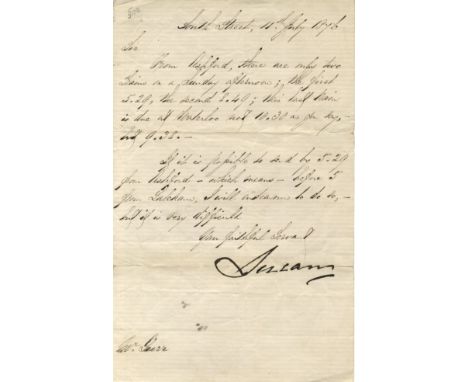 South Street, 11th July 1876
Sir
From Ashford, there are only two
trains on a Sunday afternoon; the first
5.29, the second 8.49; this last train
is due at Waterloo not 10.30 as you say,
9.38.—
If it is possible to send by 5.29
from Ashford – which means – before 5
from Laleham, I will endeavour to do so,—
but it is very difficult
Your faithful Serva[nt]
Lucan
Mr.